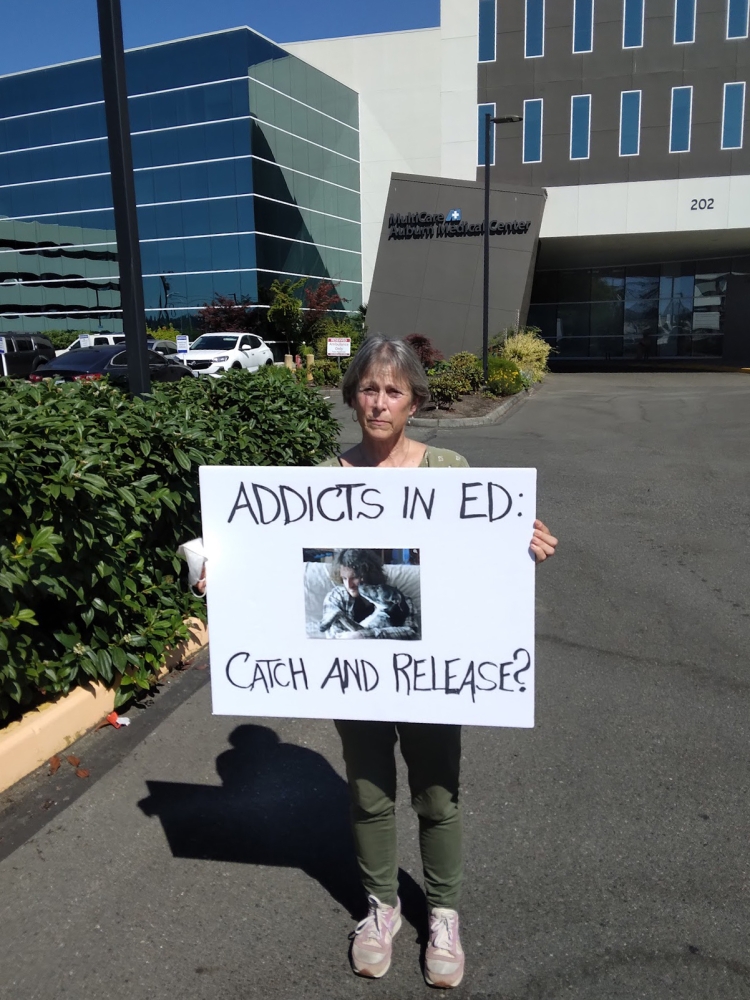 MultiCare
Auburn Medical Center
202
ADDICTS IN ED:
CATCH AND RELEASE?